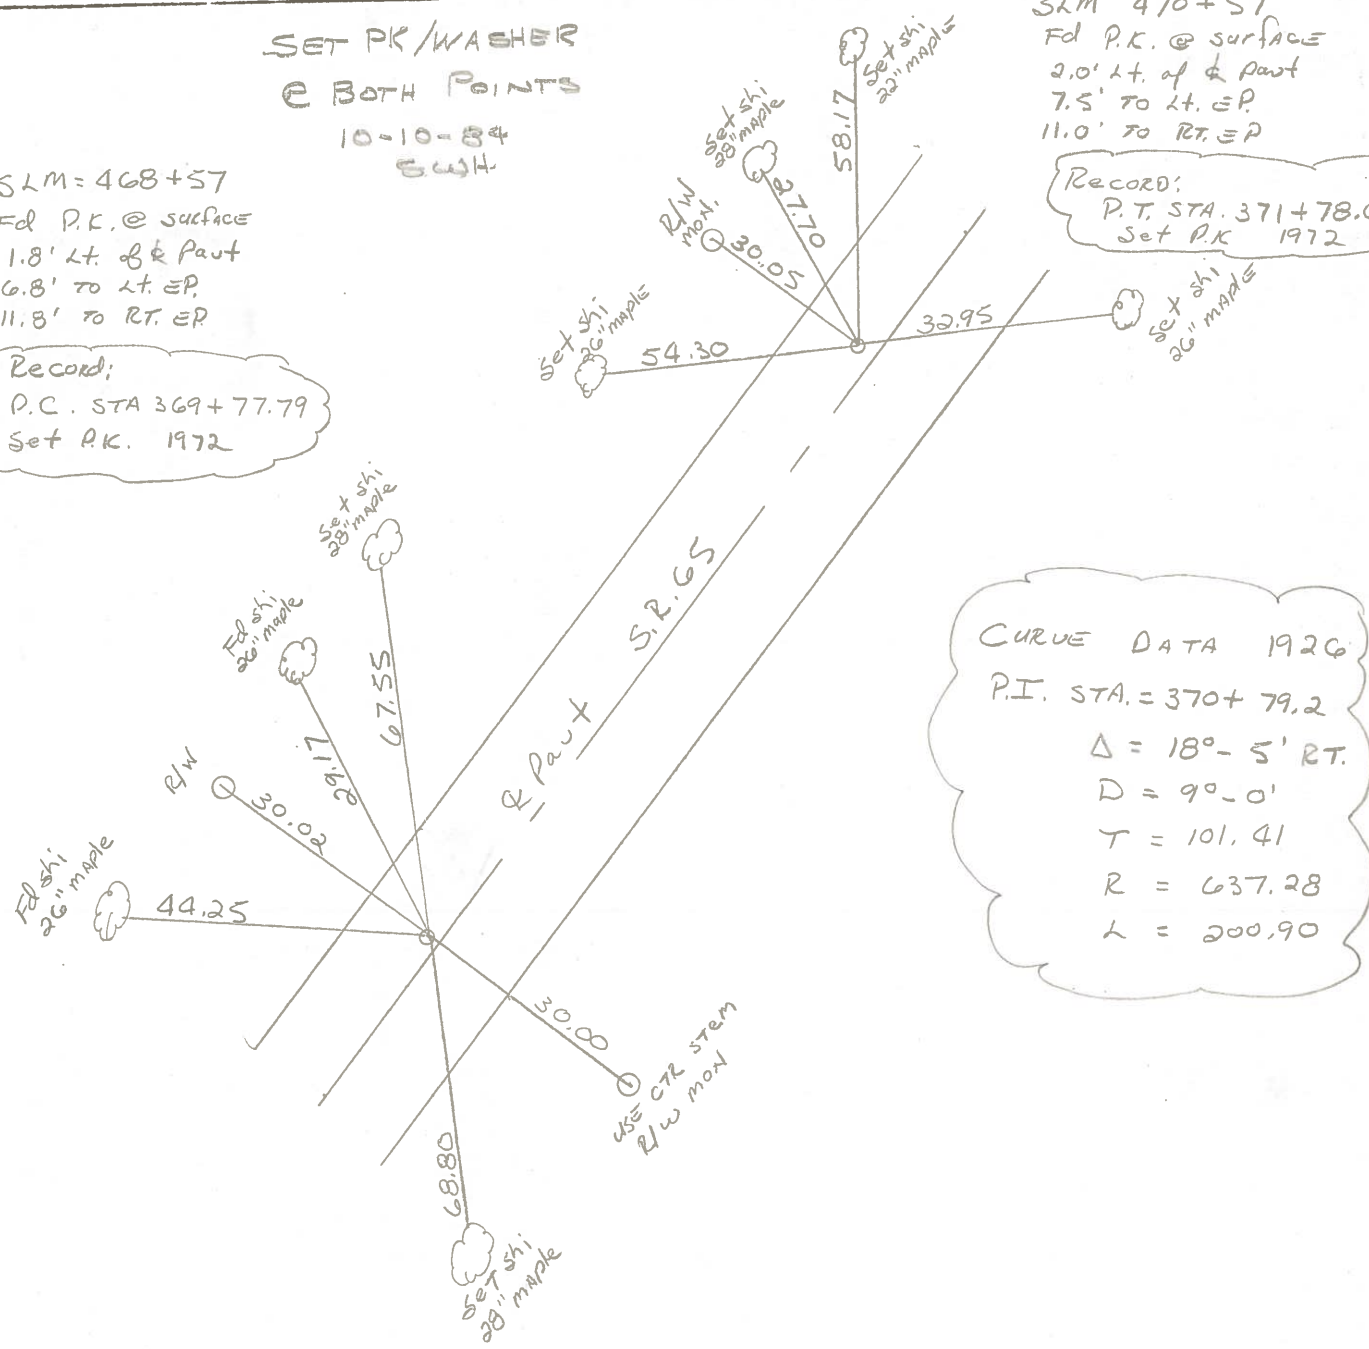 SET PK/WASHER
@ BOTH POINTS
10-10-84
SWH
SLM = 468+57
Fd P.K. @ surface
1.8' Lt. of ℄ Pavt
6.8' TO Lt. EP.
11.8' TO RT. EP.
Record:
P.C. STA 369+77.79
Set P.K. 1972
SLM 470+57
Fd P.K. @ surface
2.0' Lt. of ℄ Pavt
7.5' TO Lt. EP.
11.0' TO RT. EP
Record:
P.T. STA. 371+78.
Set P.K 1972
Set shi
22" maple
58.17
Set shi
28" maple
27.70
R/W
MON.
30.05
Set shi
26" maple
54.30
32.95
Set shi
26" maple
Set shi
28" maple
67.55
Fd shi
26" maple
29.17
R/W
30.02
Fd shi
26" maple
44.25
℄ Pavt
S.R. 65
30.00
USE CTR STEM
R/W MON
68.80
Set shi
28" maple
CURVE DATA 1926
P.I. STA. = 370+79.2
Δ = 18°-5' RT.
D = 9°-0'
T = 101.41
R = 637.28
L = 200.90